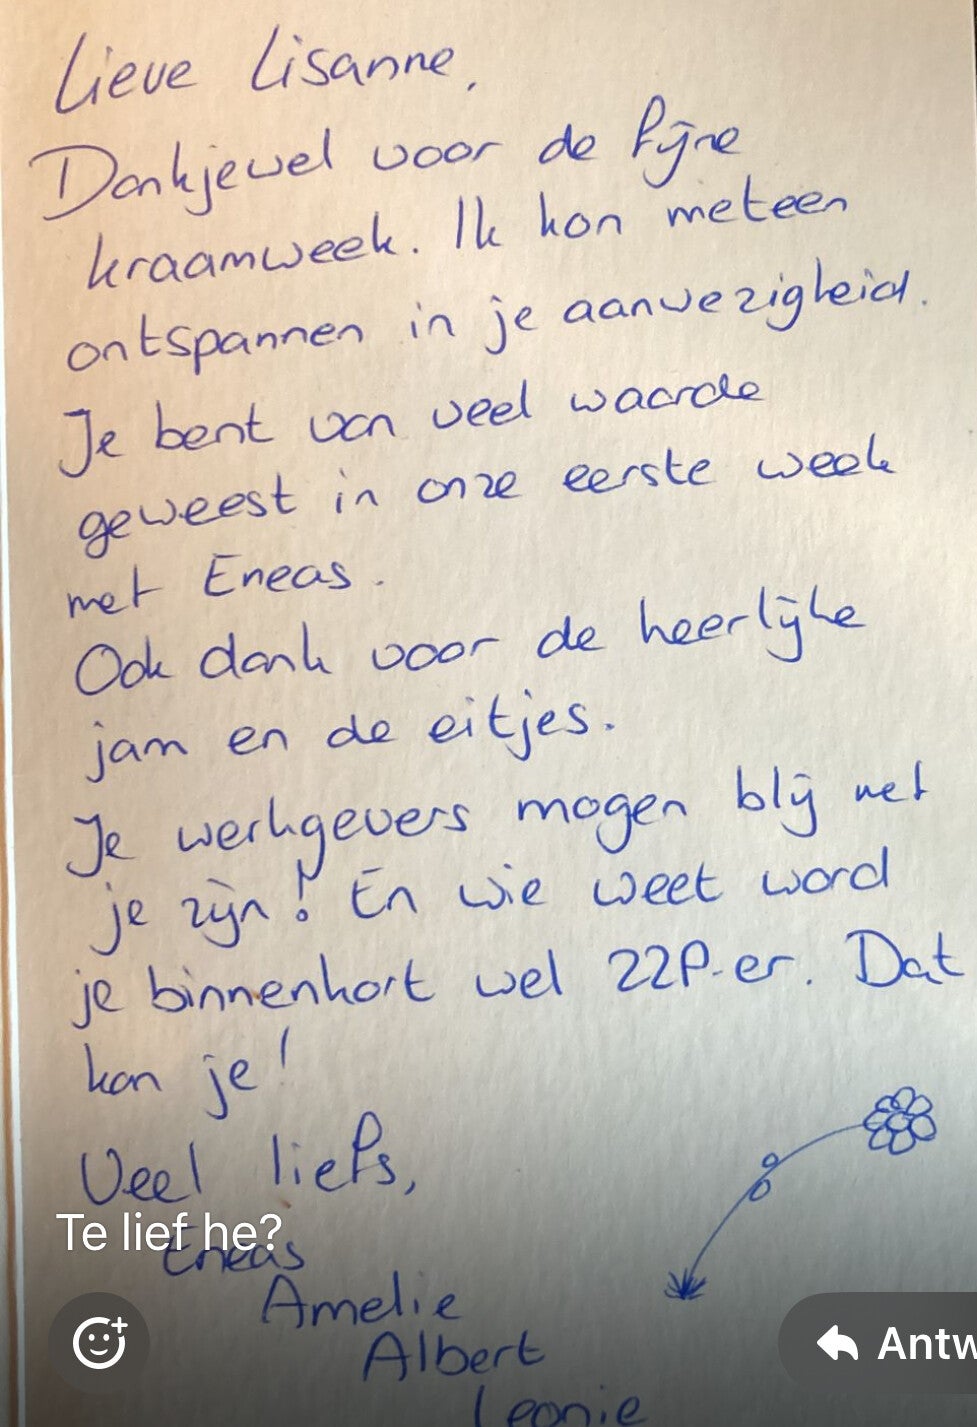 Lieve Lisanne,
Dankjewel voor de fijne
kraamweek. Ik kon meteen
ontspannen in je aanwezigheid.
Je bent van veel waarde
geweest in onze eerste week
met Eneas.
Ook dank voor de heerlijke
jam en de eitjes.
Je werkgevers mogen blij met
je zijn! En wie weet word
je binnenkort wel ZZP-er. Dat
kan je!
Veel liefs,
Te lief he?
Eneas
Amelie
Albert
Leonie
Antw